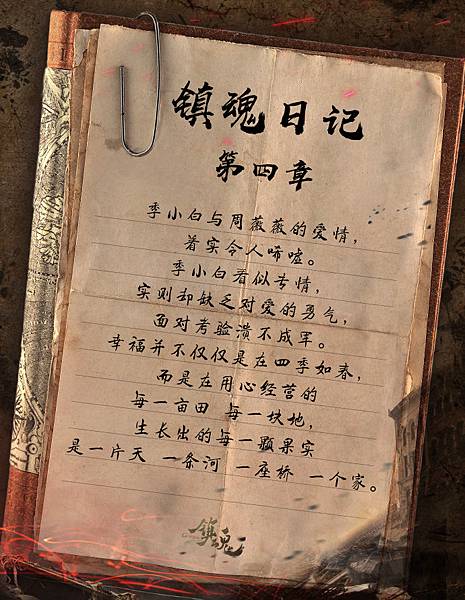 镇魂日记
第四章
季小白与周薇薇的爱情，
着实令人唏嘘。
季小白看似专情，
实则却缺乏对爱的勇气，
面对考验溃不成军。
幸福并不仅仅是在四季如春，
而是在用心经营的
每一亩田 每一块地，
生长出的每一颗果实
是一片天 一条河 一座桥 一个家。
镇魂